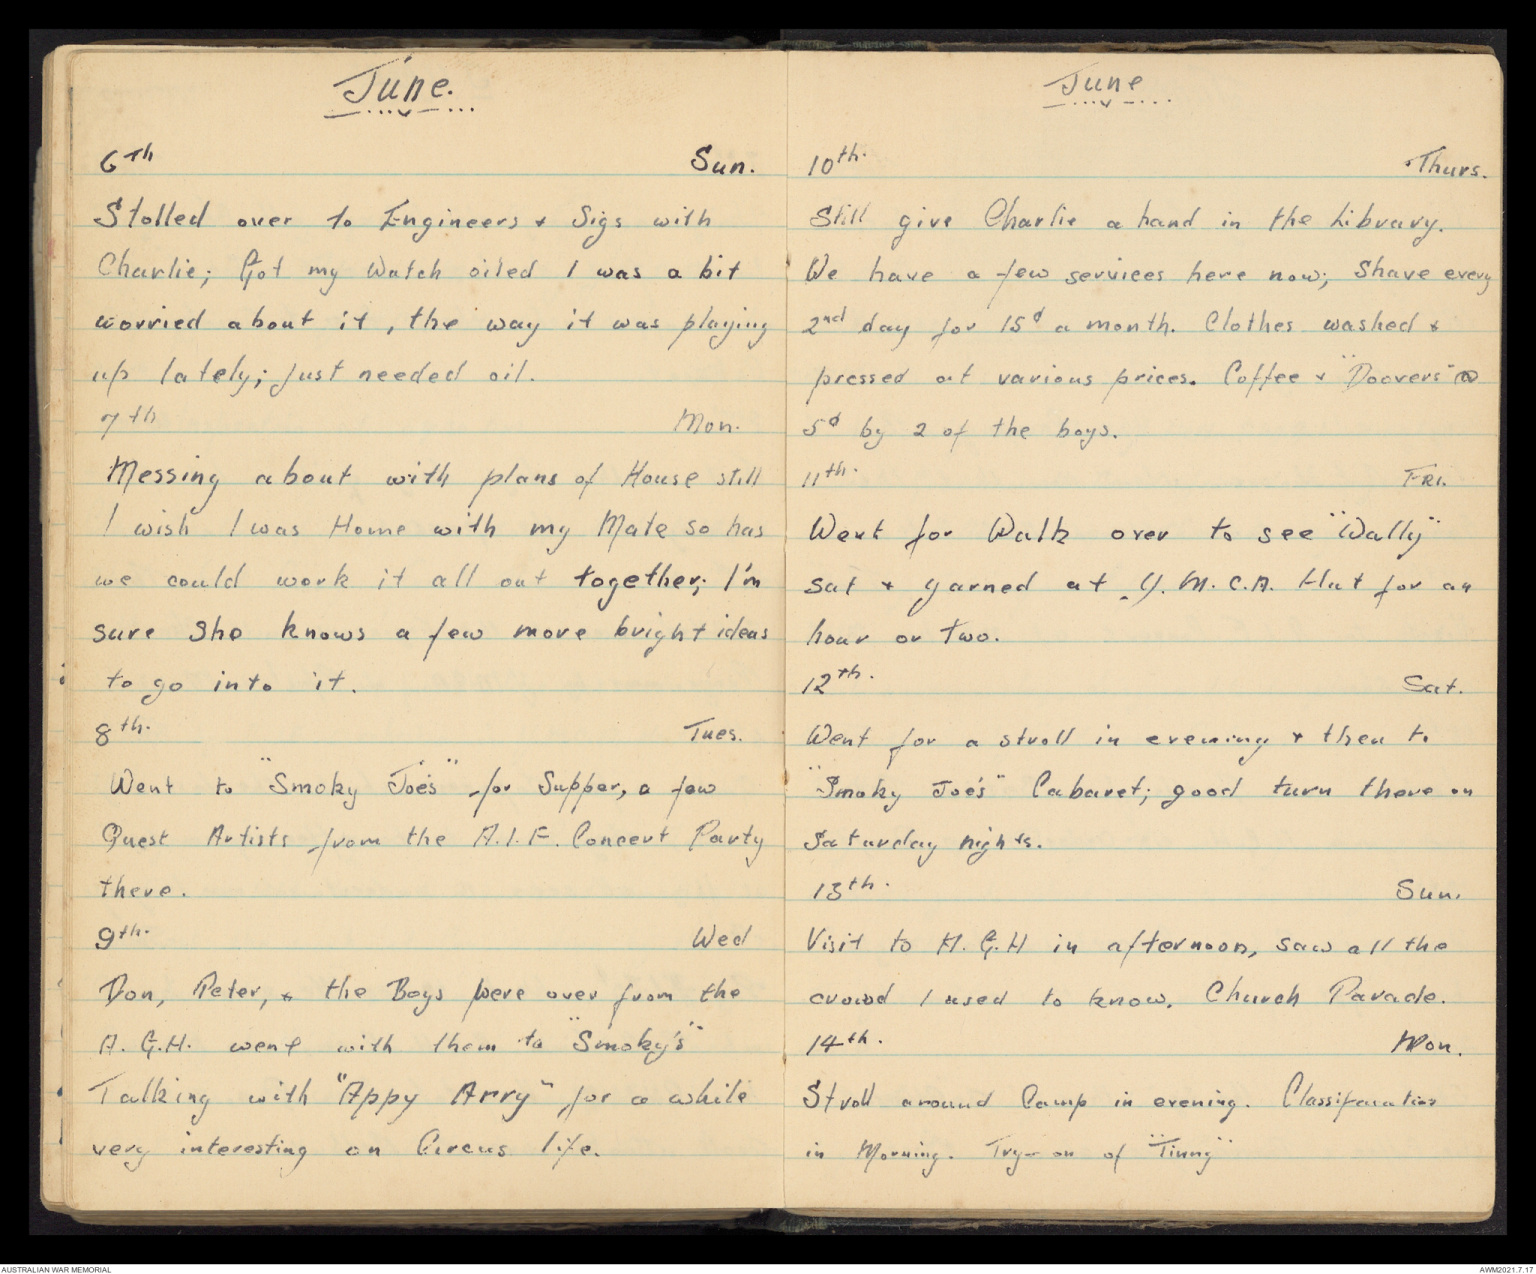 June.
6th Sun.
Stolled over to Engineers & Sigs with
Charlie; Got my Watch oiled I was a bit
worried about it, the way it was playing
up lately; just needed oil.
7th Mon.
Messing about with plans of House still
I wish I was Home with my Mate so has
we could work it all out together; I'm
sure She knows a few more bright ideas
to go into it.
8th. Tues.
Went to "Smoky Joe's" for Supper, a few
Guest Artists from the A.I.F. Concert Party
there.
9th. Wed
Don, Peter, & the Boys were over from the
A.G.H. went with them to "Smoky's"
Talking with "Appy Arry" for a while
very interesting on Circus life.
June
10th. Thurs.
Still give Charlie a hand in the Library.
We have a few services here now; Shave every
2nd day for 15d a month. Clothes washed &
pressed at various prices. Coffee & "Doovers" @
5d by 2 of the boys.
11th. Fri.
Went for Walk over to see "Wally"
sat & yarned at Y.M.C.A. Hut for an
hour or two.
12th. Sat.
Went for a stroll in evening & then to
"Smoky Joe's" Cabaret; good turn there on
Saturday nights.
13th. Sun.
Visit to A.G.H in afternoon, saw all the
crowd I used to know. Church Parade.
14th. Mon.
Stroll around Camp in evening. Classification
in Morning. Try-on of "Tinny"
AUSTRALIAN WAR MEMORIAL
AWM2021.7.17